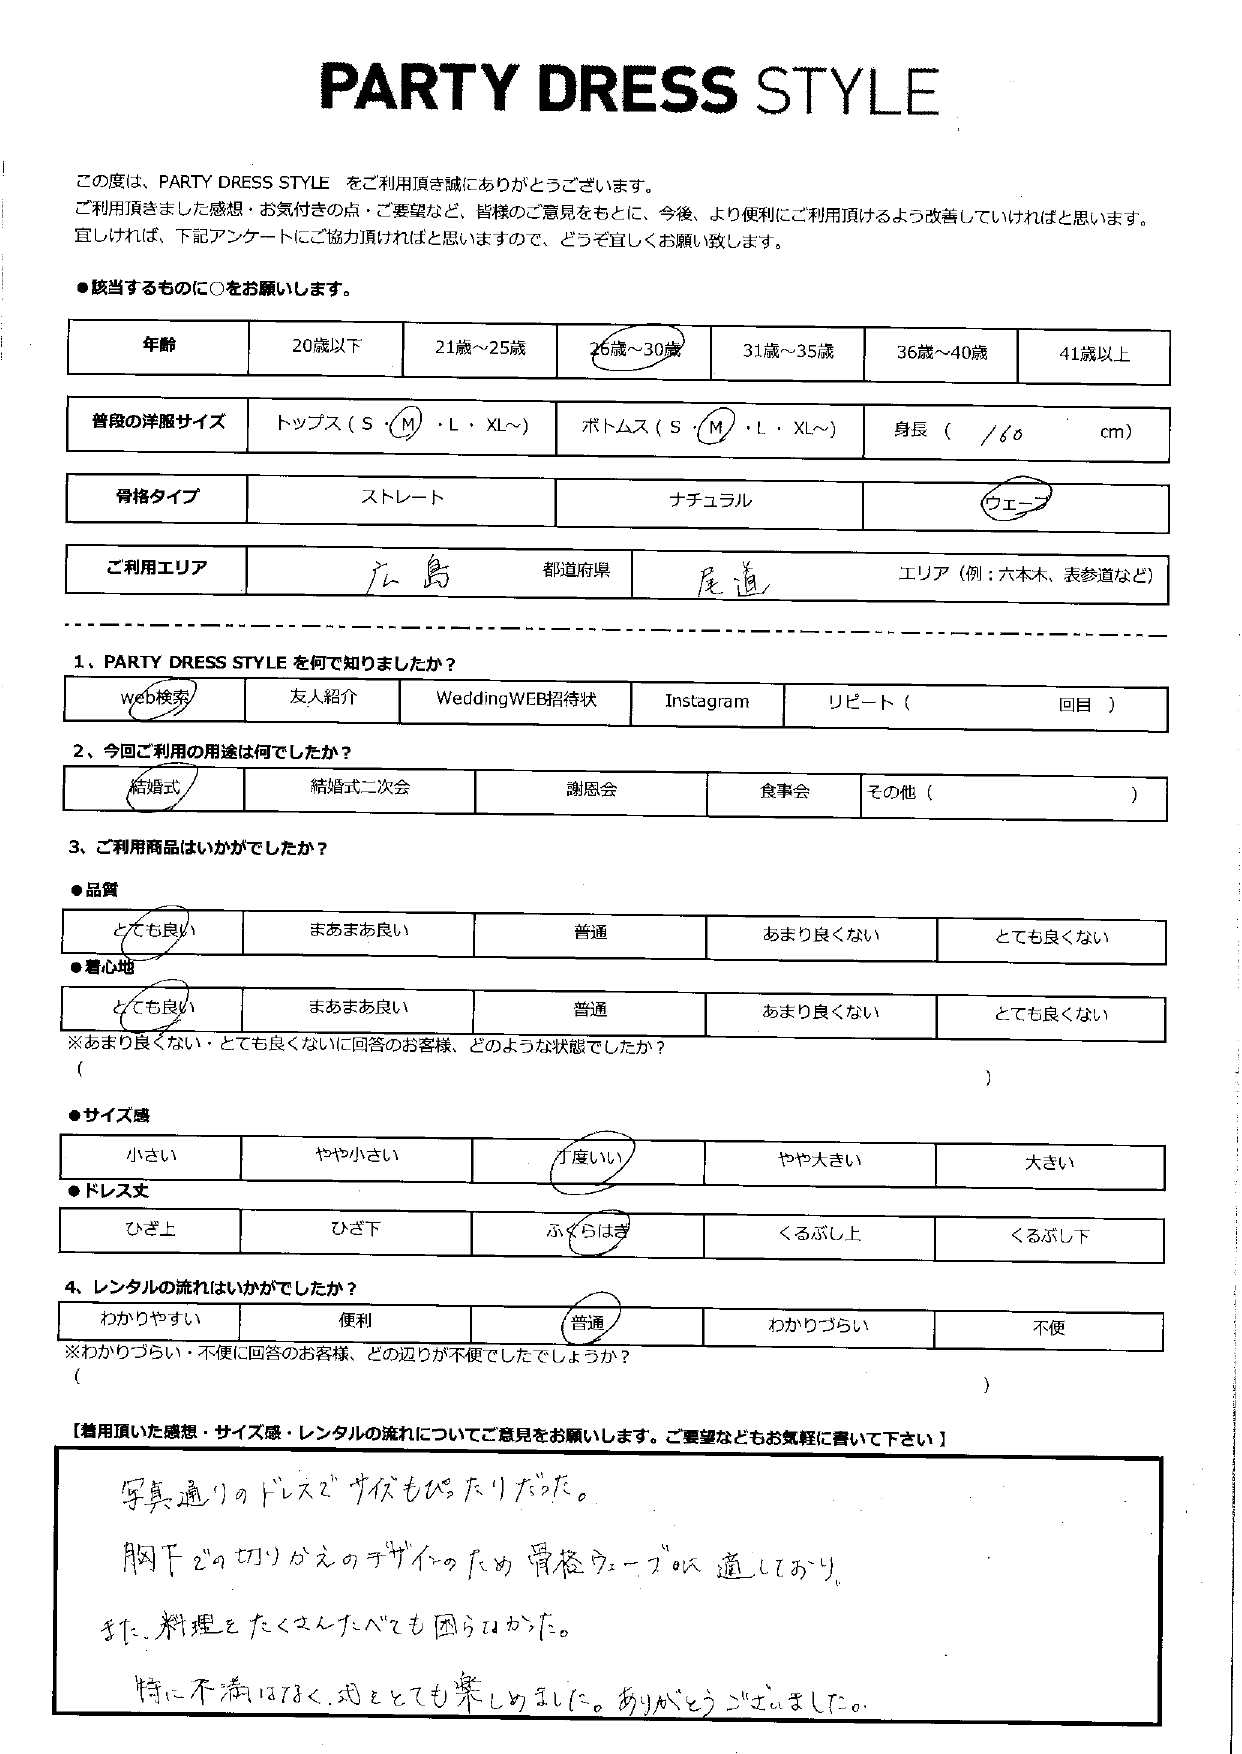 PARTY DRESS STYLE
この度は、PARTY DRESS STYLE をご利用頂き誠にありがとうございます。
ご利用頂きました感想・お気付きの点・ご要望など、皆様のご意見をもとに、今後、より便利にご利用頂けるよう改善していければと思います。
宜しければ、下記アンケートにご協力頂ければと思いますので、どうぞ宜しくお願い致します。
●該当するものに○をお願いします。
年齢 20歳以下 21歳～25歳 26歳～30歳 31歳～35歳 36歳～40歳 41歳以上
普段の洋服サイズ トップス ( S ・ M ・ L ・ XL～) ボトムス ( S ・ M ・ L ・ XL～) 身長 ( 160 cm)
骨格タイプ ストレート ナチュラル ウェーブ
ご利用エリア 広島 都道府県 尾道 エリア (例：六本木、表参道など)
1、PARTY DRESS STYLE を何で知りましたか？
web検索 友人紹介 WeddingWEB招待状 Instagram リピート ( 回目 )
2、今回ご利用の用途は何でしたか？
結婚式 結婚式二次会 謝恩会 食事会 その他 ( )
3、ご利用商品はいかがでしたか？
●品質
とても良い まあまあ良い 普通 あまり良くない とても良くない
●着心地
とても良い まあまあ良い 普通 あまり良くない とても良くない
※あまり良くない・とても良くないに回答のお客様、どのような状態でしたか？
( )
●サイズ感
小さい やや小さい 丁度いい やや大きい 大きい
●ドレス丈
ひざ上 ひざ下 ふくらはぎ くるぶし上 くるぶし下
4、レンタルの流れはいかがでしたか？
わかりやすい 便利 普通 わかりづらい 不便
※わかりづらい・不便に回答のお客様、どの辺りが不便でしたでしょうか？
( )
【着用頂いた感想・サイズ感・レンタルの流れについてご意見をお願いします。ご要望などもお気軽に書いて下さい】
写真通りのドレスで サイズもぴったりだった。
胸下での切りかえのデザインのため 骨格ウェーブに適しており、
また、料理をたくさんたべても困らなかった。
特に不満はなく、式をとても楽しめました。ありがとうございました。